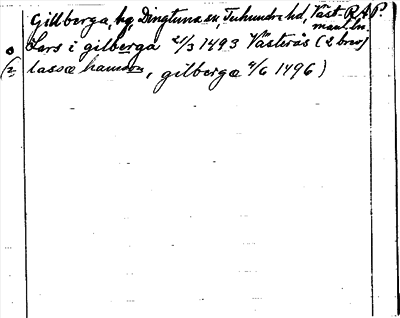 Gillberga, by, Dingtuna sn, Tuhundra hd, Västmanl. ln. RAP.
o Lars i gilberga 2/3 1493 Västerås (2 brev)
(2 lasse hanson, gilberga 2/6 1496)